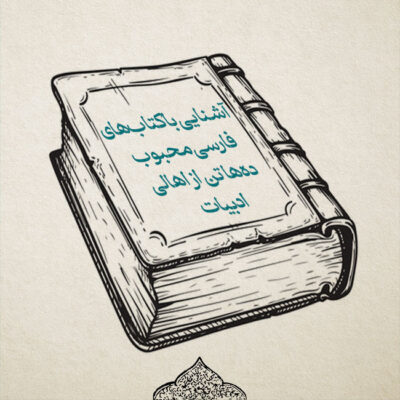 آشنایی با کتاب‌های
فارسی محبوب
ده‌ها تن از اهالی
ادبیات